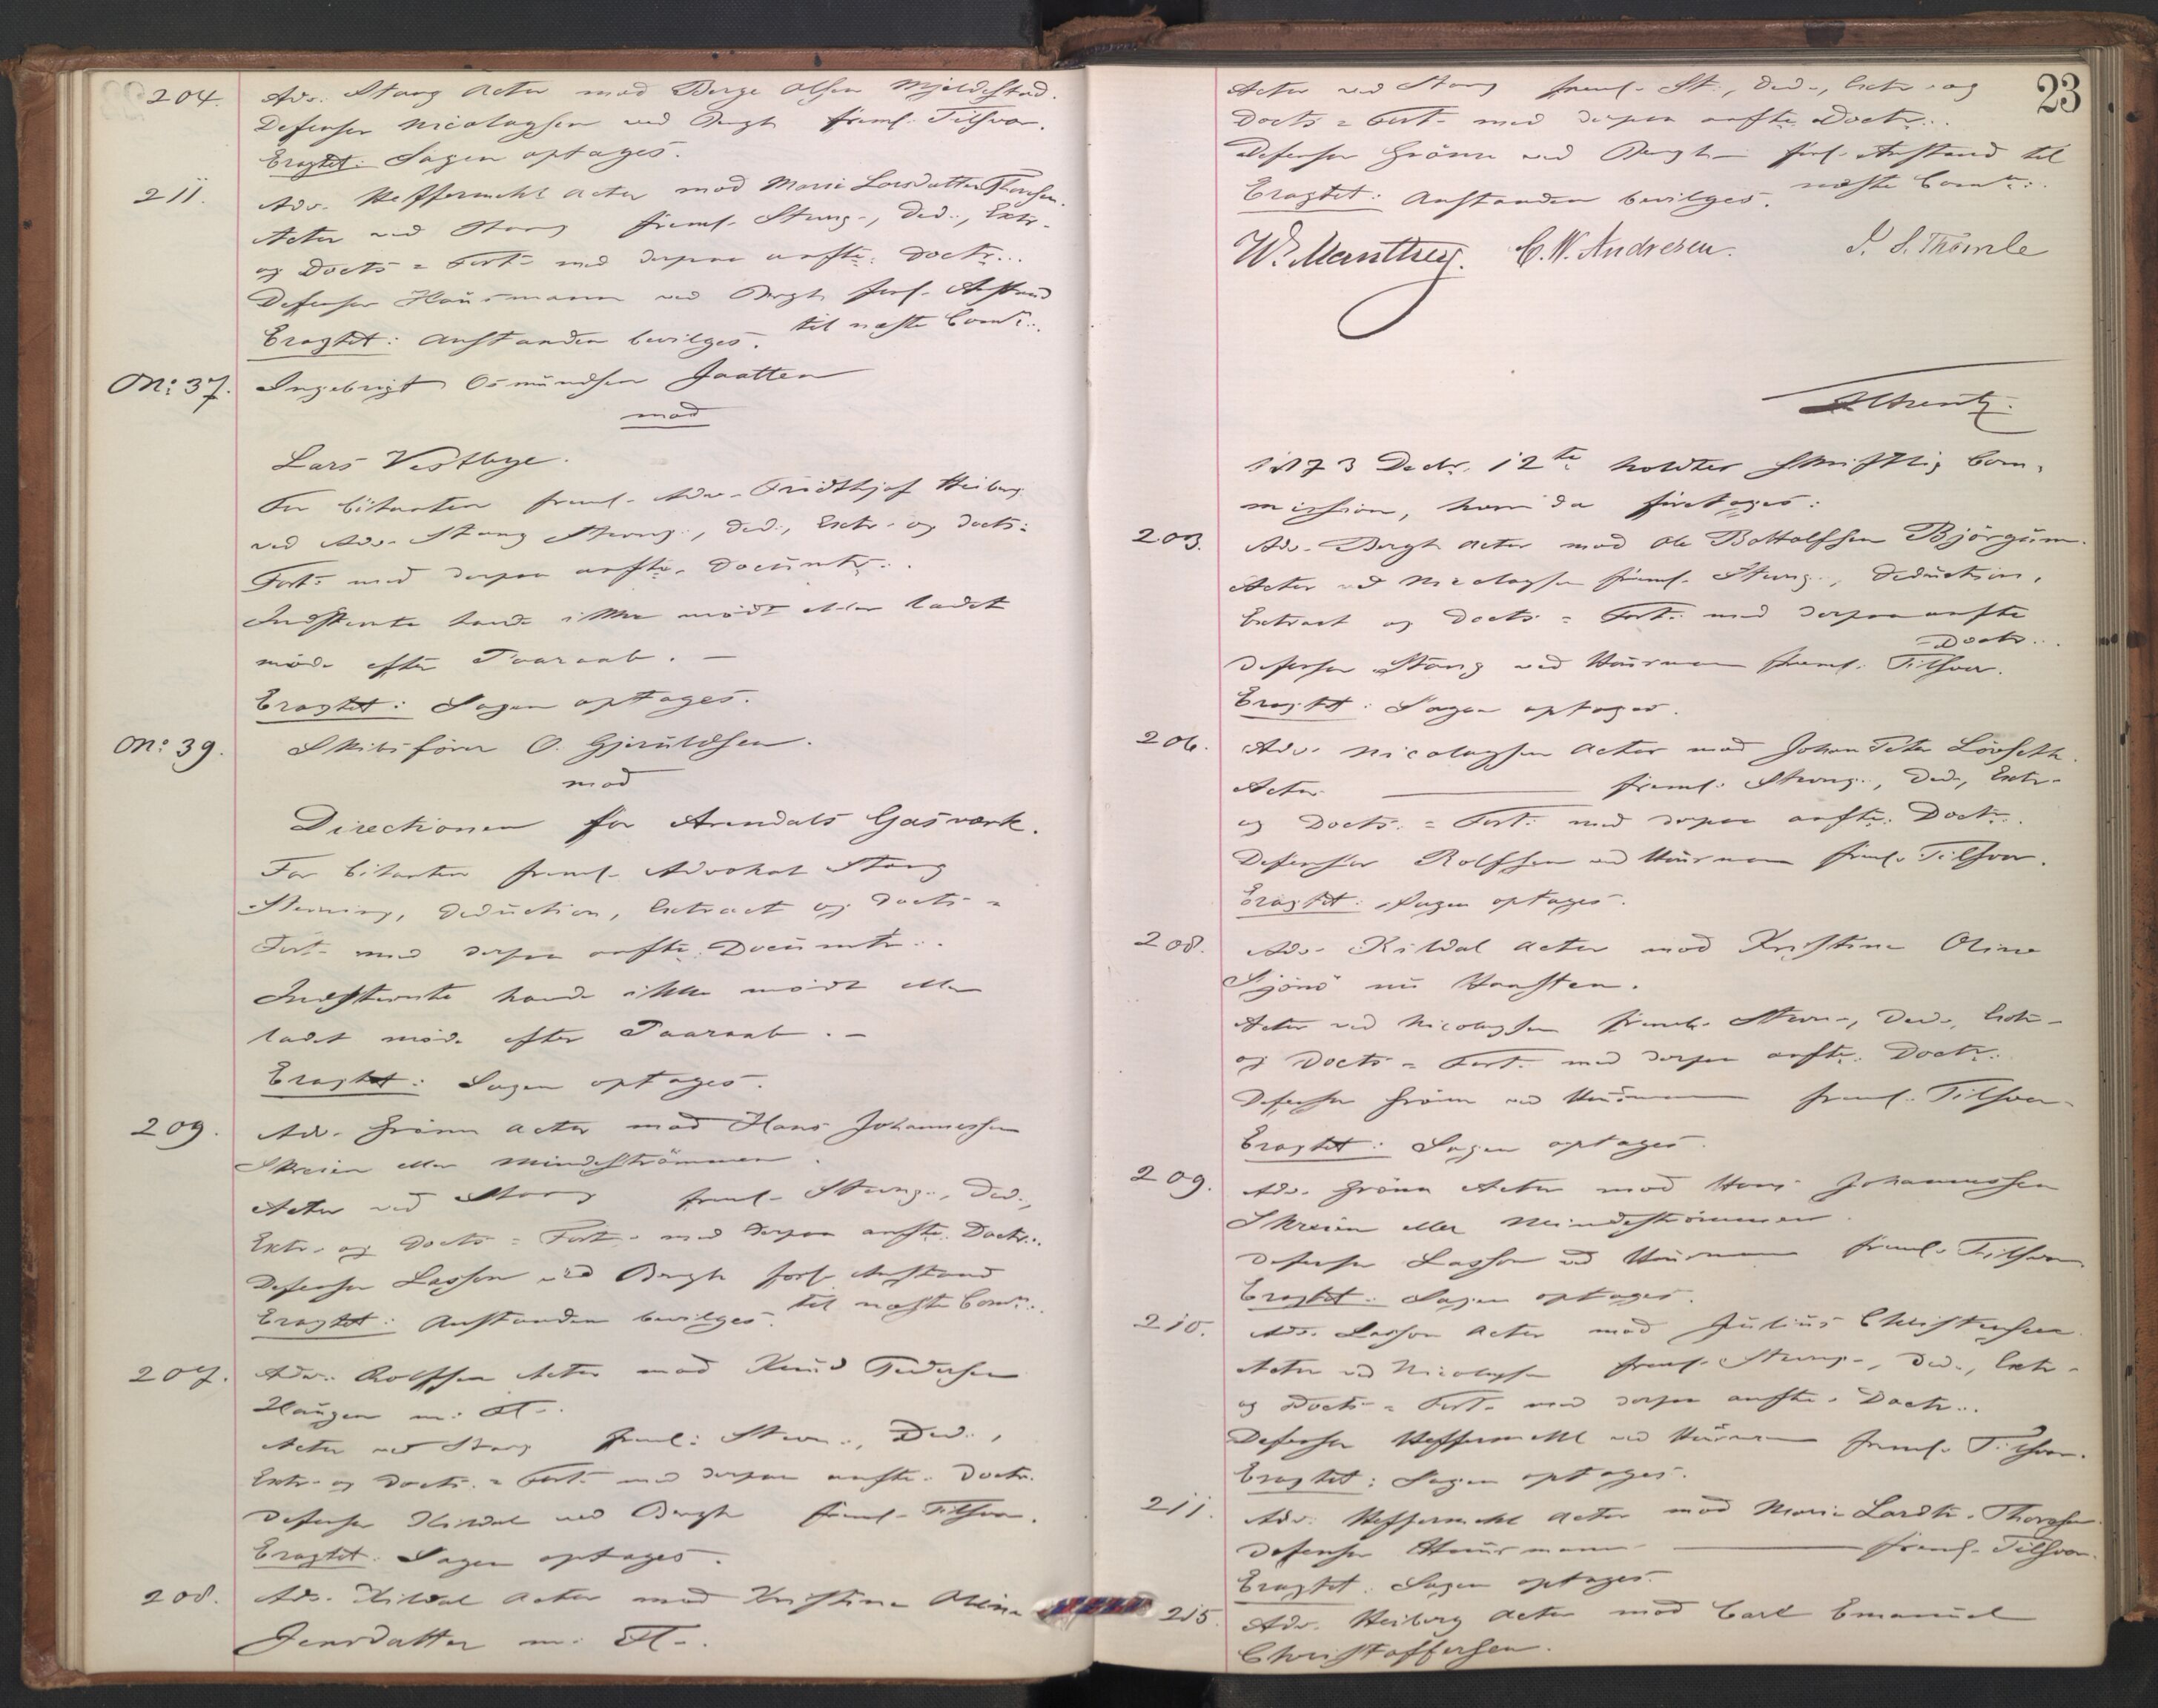 204. Adv. Stang Actor mod Børge Olsen Mjeldestad.
Defensor Nicolaysen ved Bergh freml. Tilsvar.
Eragtet: Sagen optages.
211. Adv. Heffermehl Actor mod Marie Larsdatter Thoresen.
Actor ved Stang freml. Stevng., Ded., Extr.
og Docts = Fort. med derpaa anfte. Doctr..
Defensor Haüsmann ved Bergh forl. Anstand
til næste Comn..
Eragtet: Anstanden bevilges.
No: 37. Ingebrigt Osmündsen Jaatten
mod
Lars Vestbye.
For Citanten freml. Adv. Fridthjof Heiberg
ved Adv. Stang Stevng., Ded., Extr. og Docts =
Fort. med derpaa anfte. Documtr..
Indstevnte havde ikke mødt eller ladet
møde efter Paaraab. —
Eragtet: Sagen optages.
No: 39. Skibsfører O. Gjerüldsen.
mod
Directionen for Arendals Gasværk.
For Citanten freml. Advokat Stang
Stevning, Deduction, Extract og Docts =
Fort. med derpaa anfte. Documtr..
Indstevnte havde ikke mødt eller
ladet møde efter Paaraab. —
Eragtet: Sagen optages.
209. Adv. Grönn Actor mod Hans Johannessen
Skreien eller Mindeströmmen.
Actor ved Stang freml. Stevng., Ded.,
Extr. og Docts = Fort. med derpaa anfte. Doctr..
Defensor Lasson ved Bergh forl. Anstand
til næste Comn..
Eragtet: Anstanden bevilges.
207. Adv. Rolfsen Actor mod Knüd Pedersen
Haügen m: Fl..
Actor ved Stang freml. Stevn., Ded.,
Extr. og Docts. = Fort. med derpaa anfte. Doctr.
Defensor Kildal ved Bergh freml. Tilsvar.
Eragtet: Sagen optages.
208. Adv. Kildal Actor mod Kristine Oline
Jensdatter m: Fl..
23
Actor ved Stang freml. St., Ded., Extr. og
Docts = Fort. med derpaa anfte. Doctr..
Defensor Grönn ved Bergh forl. Anstand til
næste Comn..
Eragtet: Anstanden bevilges.
W. Manthey. C. W. Andresen. S. S. Thömle
1873 Decbr. 12te holdtes skriftlig Com-
mission, hvori da företoges:
203. Adv. Bergh Actor mod Ole Bottolfsen Björgüm.
Actor ved Nicolaysen freml. Stevng., Deduction,
Extract og Docts = Fort. med derpaa anfte
Doctr..
Defensor Stang ved Haüsmann freml. Tilsvar.
Eragtet: Sagen optages.
206. Adv. Nicolaysen Actor mod Johan Peter Lövseth.
Actor — freml. Stevng., Ded., Extr.
og Docts. = Fort. med derpaa anfte. Doctr..
Defensor Rolfsen ved Haüsmann freml. Tilsvar.
Eragtet: Sagen optages.
208. Adv. Kildal Actor mod Kristine Oline
Sjönö m:
Actor ved Nicolaysen freml. Stevn., Ded., Extr.
og Docts = Fort. med derpaa anfte. Doctr.
Defensor Grönn ved Haüsmann freml. Tilsvar.
Eragtet: Sagen optages.
209. Adv. Grönn Actor mod Hans Johannessen
Skreien eller Mindeströmmen.
Defensor Lasson ved Haüsmann freml. Tilsvar.
Eragtet: Sagen optages.
210. Adv. Lasson Actor mod Jülius Christensen
Actor ved Nicolaysen freml. Stevng., Ded., Extr.
og Docts = Fort. med derpaa anfte. Doctr..
Defensor Heffermehl ved Haüsmann freml. Tilsvar.
Eragtet: Sagen optages.
211. Adv. Heffermehl Actor mod Marie Larsdtr. Thoresen.
Defensor Haüsmann — freml. Tilsvar.
Eragtet: Sagen optages.
215. Adv. Heiberg Actor mod Carl Emanüel
Christoffersen.